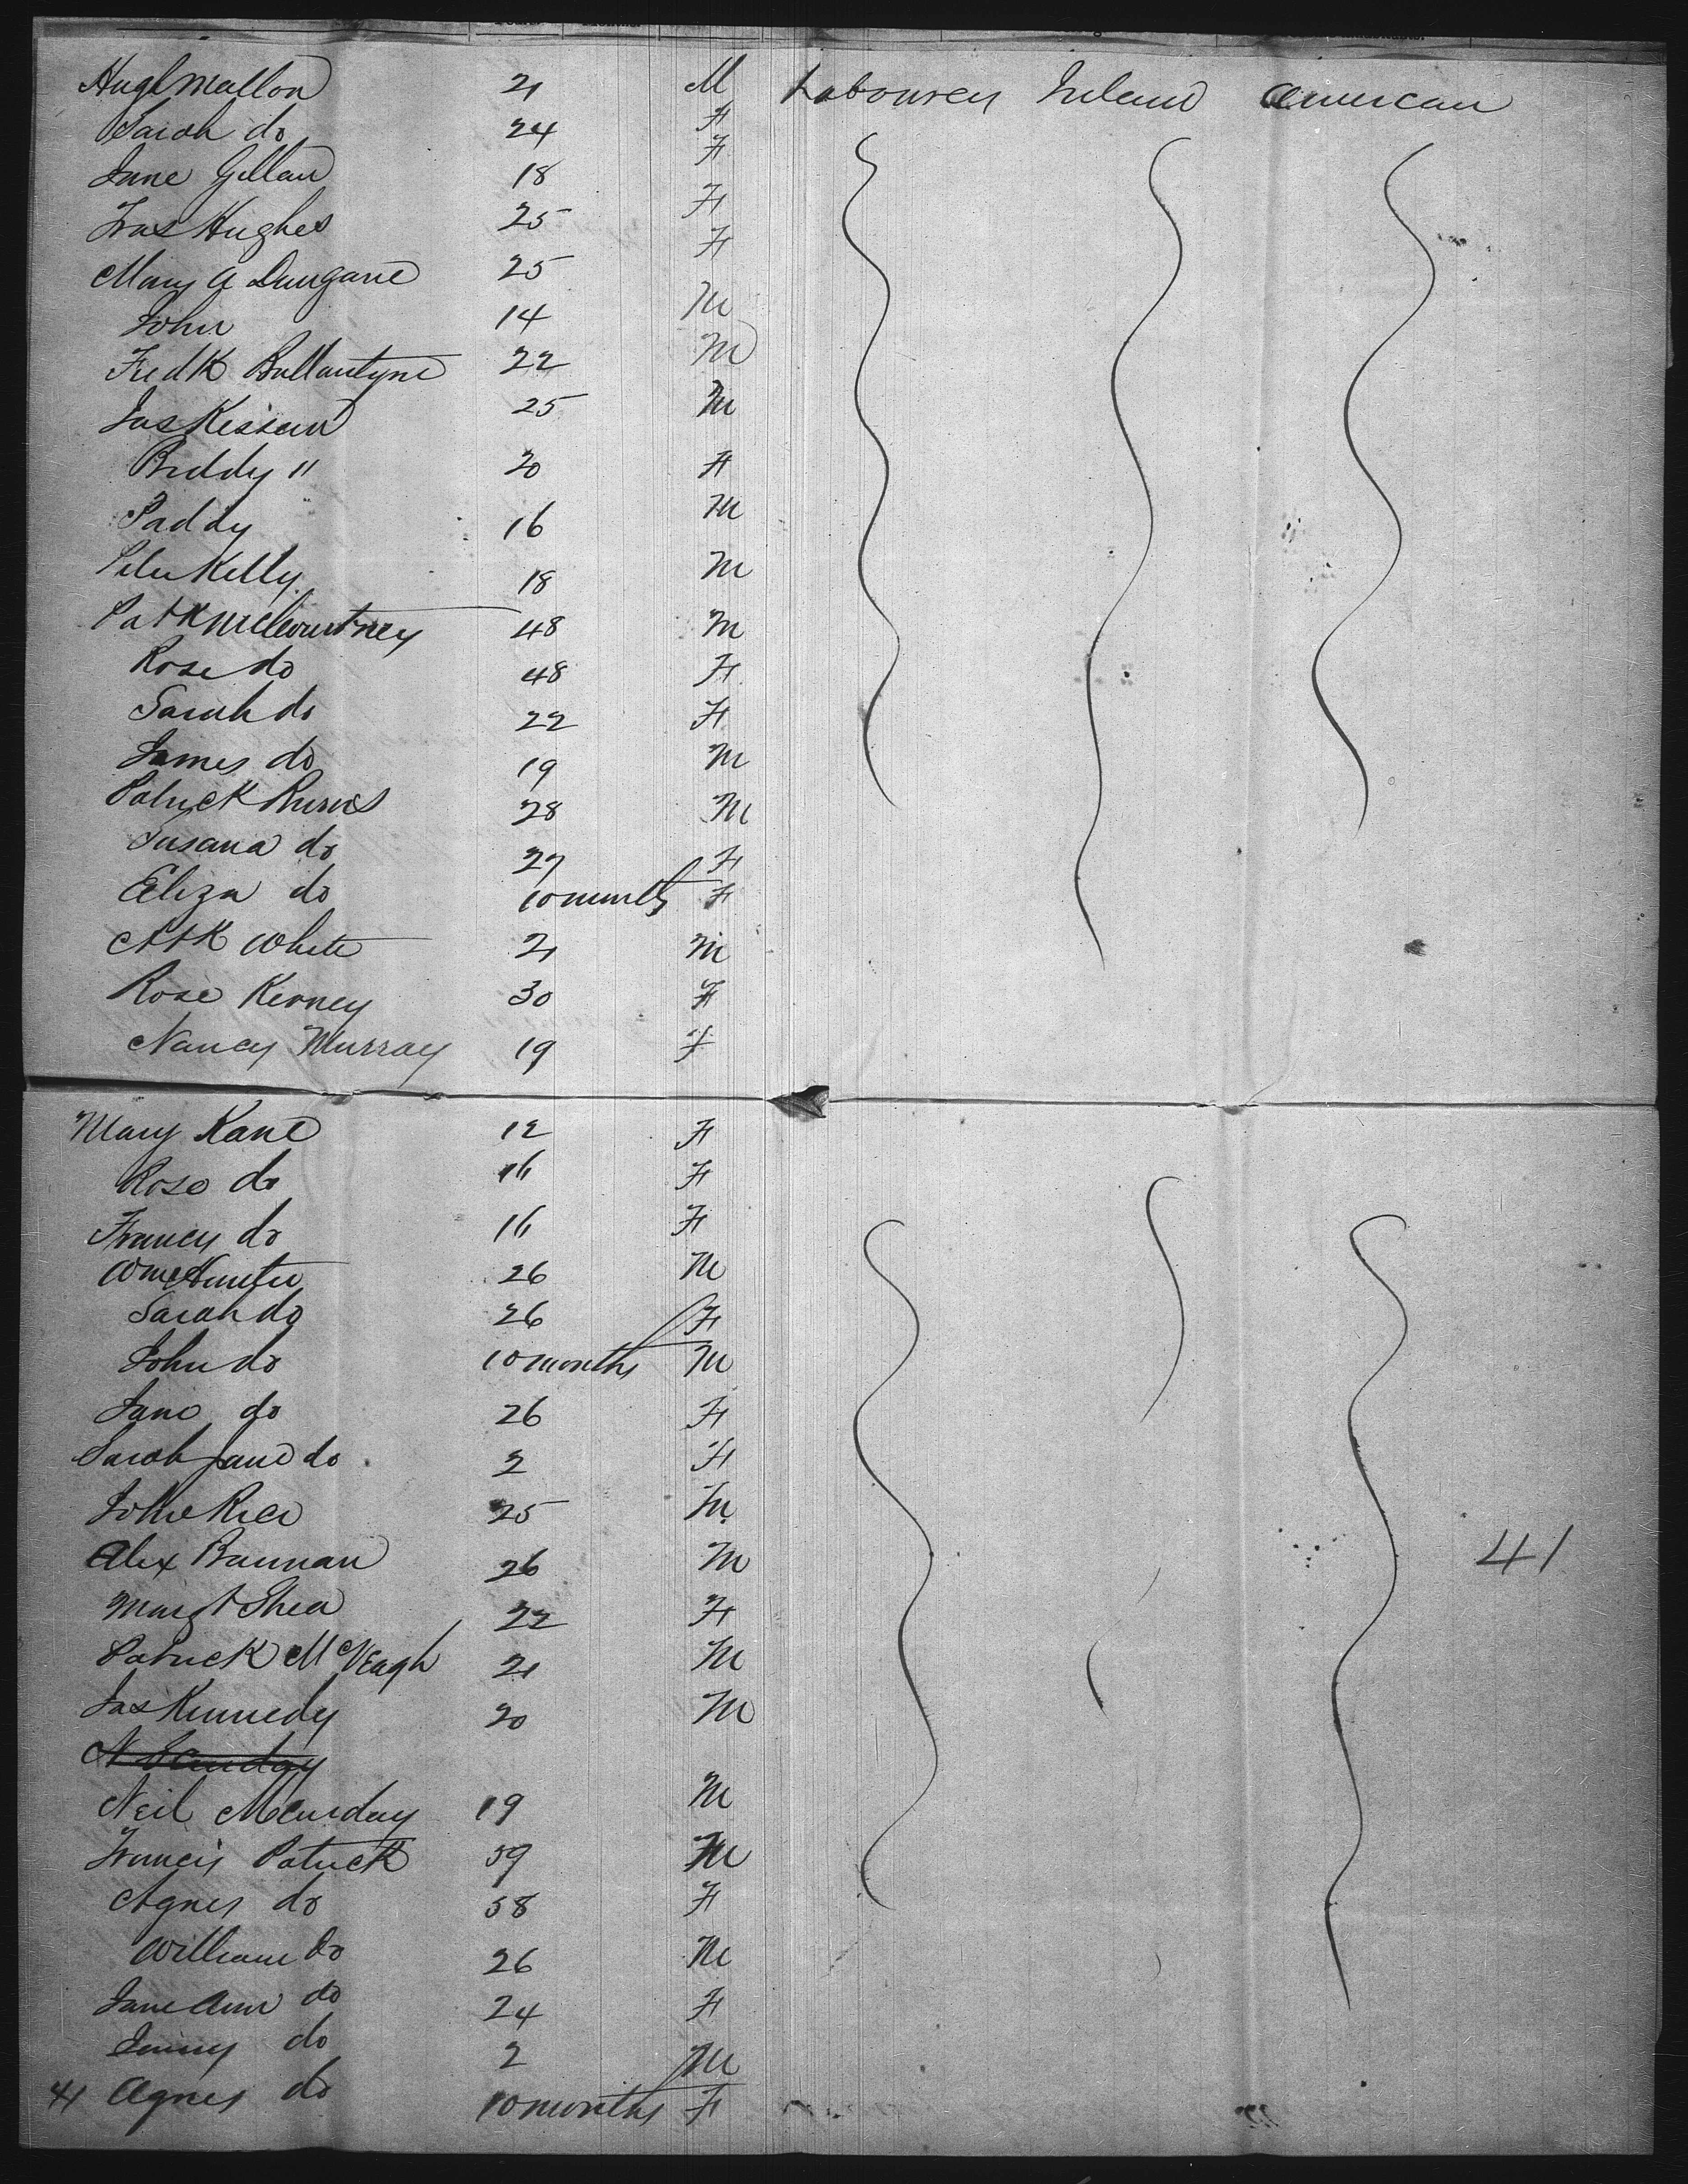 Hugh Mallon 21 M Labourer Ireland American
Sarah do 24 F
Jane Gillan 18 F
Fras Hughes 25 F
Mary A Dungane 25 F
John 14 M
Fredk Ballantyne 22 M
Jas Kissan 25 M
Biddy " 20 F
Paddy 16 M
Peter Kelly 18 M
Patk McCourtney 48 M
Rose do 48 F
Sarah do 22 F
James do 19 M
Patrick 28 M
Susana do 27 F
Eliza do 10 months F
White 21 M
Rose Kerney 30 F
Nancy Murray 19 F
Mary Kane 12 F
Rose do 16 F
Francy do 16 F
Wm Hunter 26 M
Sarah do 26 F
John do 10 months M
Jane do 26 F
Sarah Jane do 2 F
John Rice 25 M
Alex Bannan 26 M 41
Margt Shea 22 F
Patrick McVeagh 21 M
Jas Kennedy 20 M
Neil McCurday 19 M
Francis Patrick 59 M
Agnes do 58 F
William do 26 M
Jane Ann do 24 F
do 2 M
41 Agnes do 10 months F